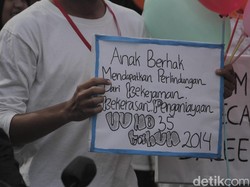 Anak Berhak
Mendapatkan Perlindungan
Dari Pekerjaman,
Kekerasan, Penganiayaan
UU NO 35
tahun 2014
detikcom